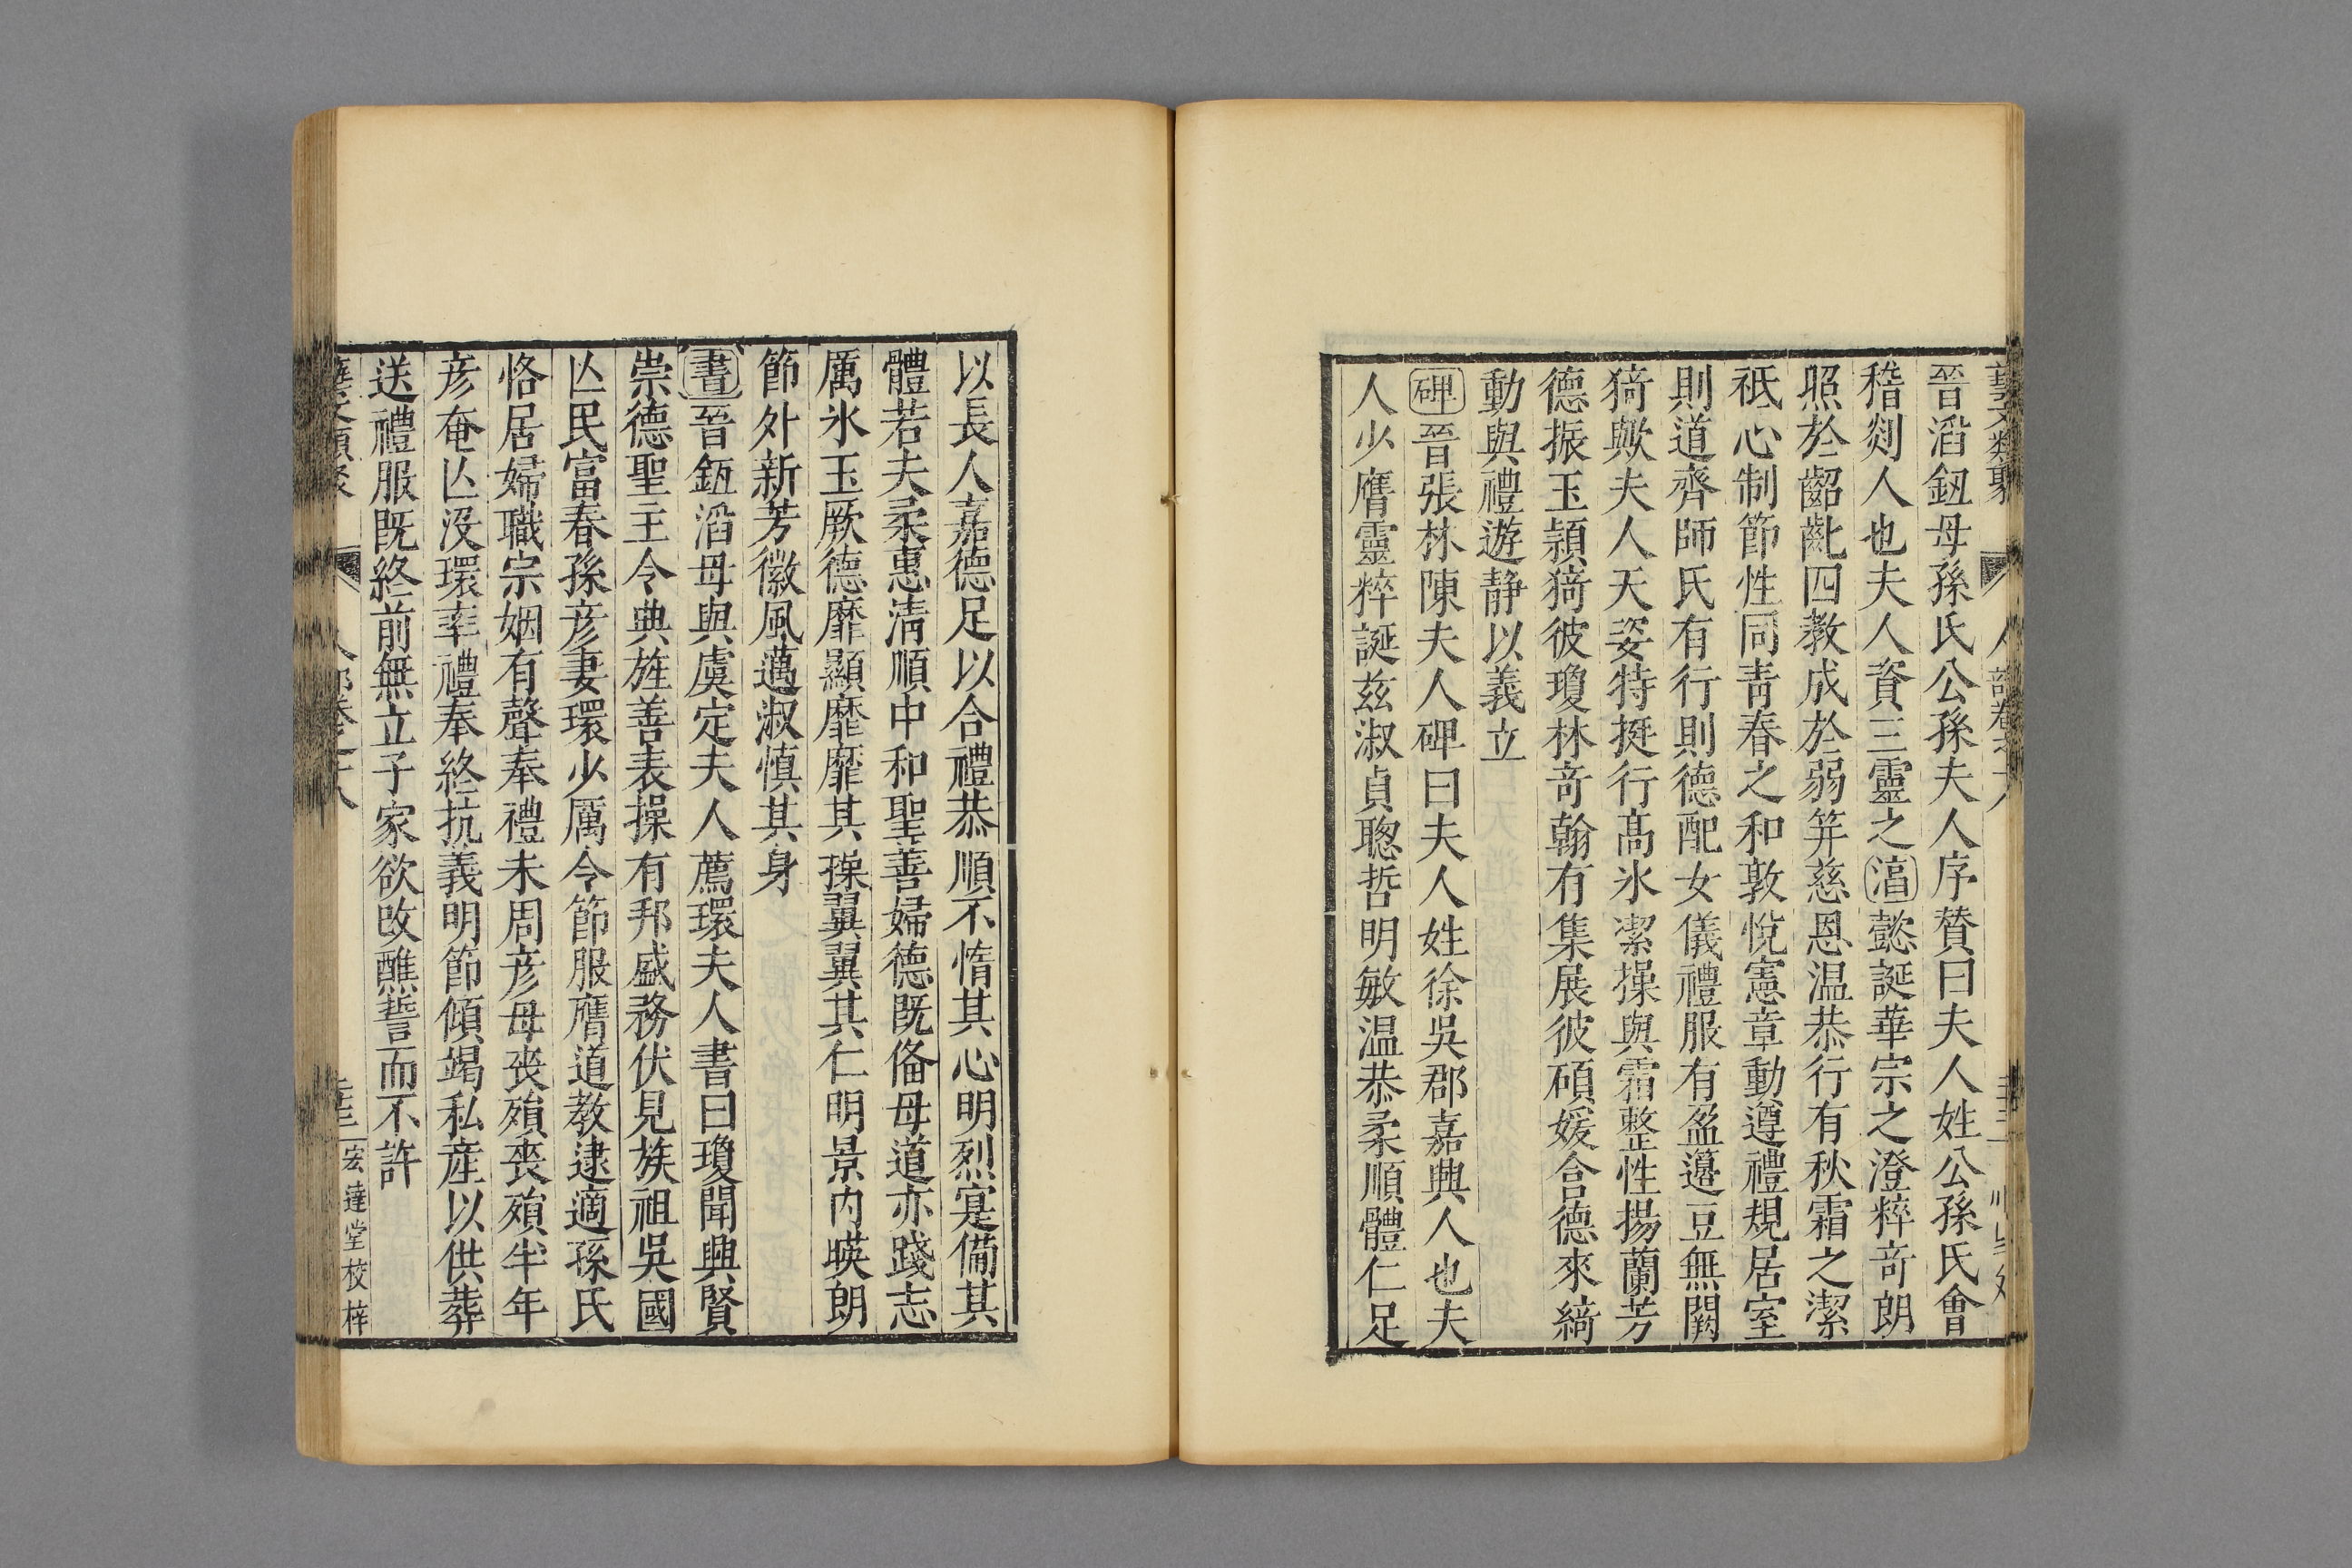 藝文類聚 人部卷之十八
晉滔鈕母孫氏公孫夫人序贊曰夫人姓公孫氏會
稽剡人也夫人資三靈之淸懿誕華宗之澄粹奇朗
照於齠齔四教成於弱笄慈恩温恭行有秋霜之潔
祇心制節性同靑春之和敦悅憲章動遵禮規居室
則道齊師氏有行則德配女儀禮服有盈籩豆無闕
猗歟夫人天姿特挺行高氷潔操與霜整性揚蘭芳
德振玉頴猗彼瓊林奇翰有集展彼碩媛合德來綺
動與禮遊静以義立
碑晉張林陳夫人碑曰夫人姓徐吳郡嘉興人也夫
人少膺靈粹誕茲淑貞聰哲明敏温恭柔順體仁足
以長人嘉德足以合禮恭順不惰其心明烈寔備其
體若夫柔惠淸順中和聖善婦德既俻母道亦踐志
厲氷玉厥德靡顯靡靡其操翼翼其仁明景内暎朗
節外新芳徽風邁淑慎其身
書晉鈕滔母與虞定夫人薦環夫人書曰瓊聞興賢
崇德聖主令典旌善表操有邦盛務伏見族祖吳國
亾民富春孫彦妻環少厲令節服膺道教逮適孫氏
恪居婦職宗姻有聲奉禮未周彦母喪殞喪殞半年
彦奄亾没環率禮奉終抗義明節傾竭私産以供葬
送禮服既終前無立子家欲改醮誓而不許
藝文類聚 人部卷之十八 宏達堂校梓